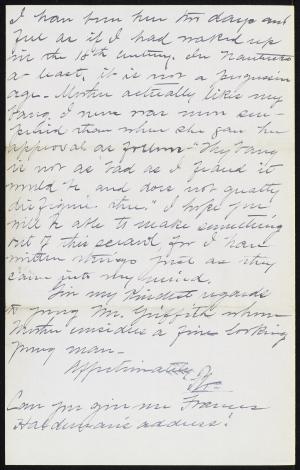 I have been here two days and
feel as if I had waked up
in the 18th century. In Nantucket
at least, it is not a progressive
age. Mother actually likes my
bang. I never was more sur-
prised than when she gave her
approval as follows "Thy bang
is not as bad as I feared it
would be and does not greatly
disfigure thee." I hope you
will be able to make something
out of this scrawl, for I have
written things just as they
came into my mind.
Give my kindest regards
to young Mr. Griffith whom
Mother considers a fine looking
young man.
Affectionately
Can you give me Frances
Hardeman's address?